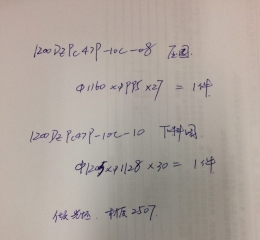 1200DZPC47P-10C-08 压圆
Φ1160×Φ995×27 = 1件
1200DZPC47P-10C-10 下料圆
Φ1205×Φ1128×30 = 1件
材质2507.